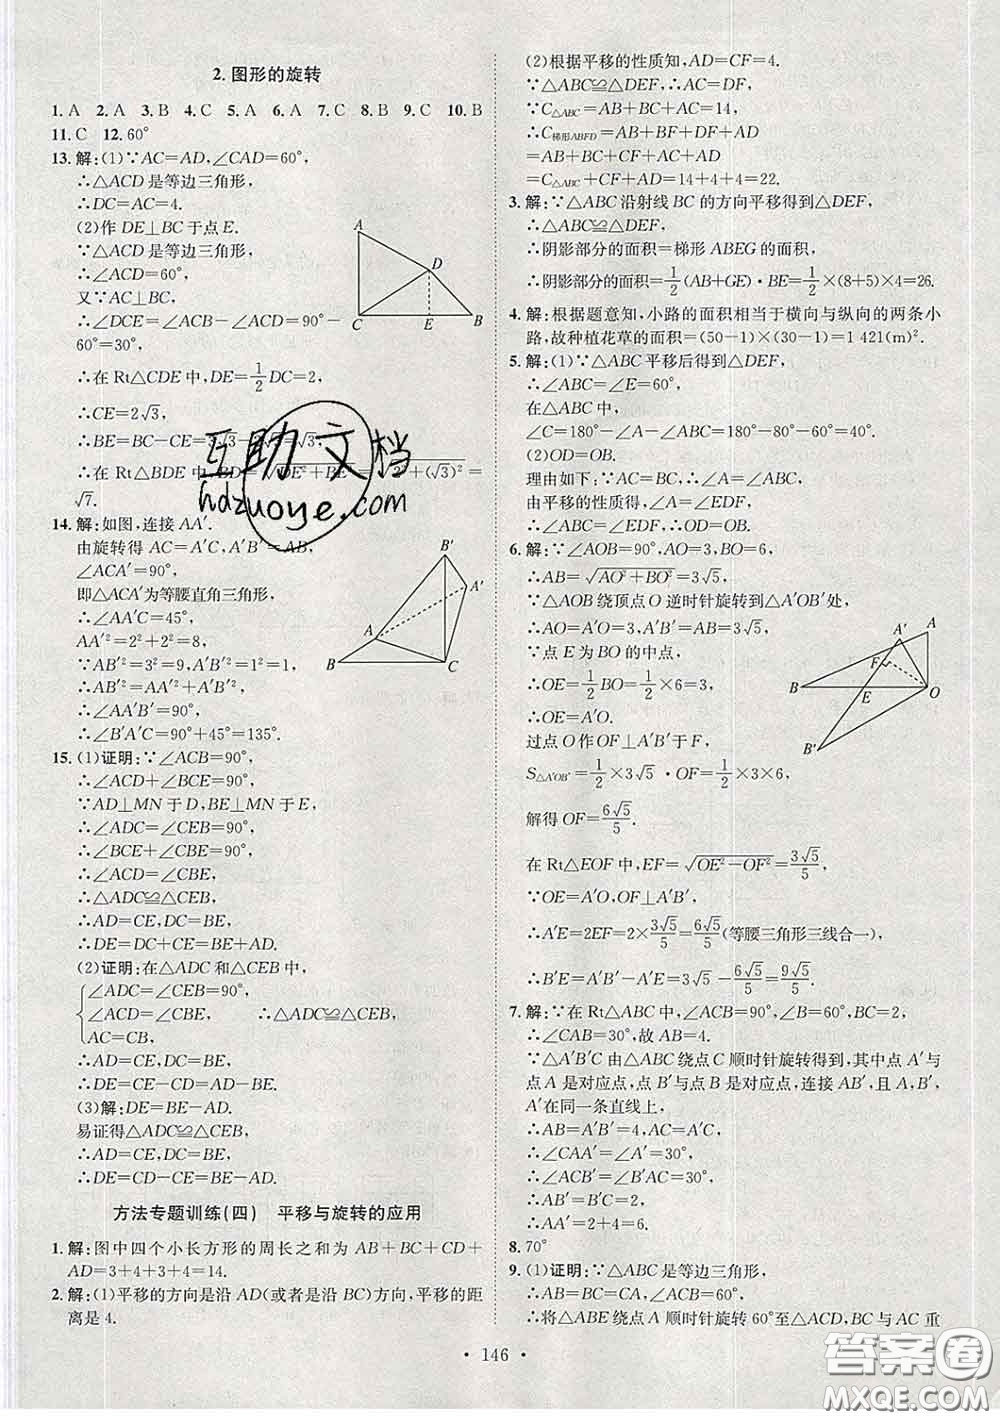 2. 图形的旋转
1. A 2. A 3. B 4. C 5. A 6. A 7. C 8. B 9. C 10. B
11. C 12. 60°
13. 解:(1)∵AC=AD,∠CAD=60°,
∴△ACD是等边三角形,
∴DC=AC=4.
(2)作DE⊥BC于点E.
∵△ACD是等边三角形,
∴∠ACD=60°,
又∵AC⊥BC,
∴∠DCE=∠ACB-∠ACD=90°-
60°=30°,
∴在Rt△CDE中,DE=1/2 DC=2,
∴CE=2√3,
∴BE=BC-CE=3√3-2√3=√3,
∴在Rt△BDE中,BD=√(DE²+BE²)=√(2²+(√3)²)=
√7.
14. 解:如图,连接AA′.
由旋转得AC=A′C,A′B′=AB,
∠ACA′=90°,
即△ACA′为等腰直角三角形,
∴∠AA′C=45°,
AA′²=2²+2²=8,
∵AB′²=3²=9,A′B′²=1²=1,
∴AB′²=AA′²+A′B′²,
∴∠AA′B′=90°,
∴∠B′A′C=90°+45°=135°.
15. (1)证明:∵∠ACB=90°,
∴∠ACD+∠BCE=90°,
∵AD⊥MN于D,BE⊥MN于E,
∴∠ADC=∠CEB=90°,
∴∠BCE+∠CBE=90°,
∴∠ACD=∠CBE,
∴△ADC≌△CEB,
∴AD=CE,DC=BE,
∴DE=DC+CE=BE+AD.
(2)证明:在△ADC和△CEB中,
∠ADC=∠CEB=90°,
∠ACD=∠CBE, ∴△ADC≌△CEB,
AC=CB,
∴AD=CE,DC=BE,
∴DE=CE-CD=AD-BE.
(3)解:DE=BE-AD.
易证得△ADC≌△CEB,
∴AD=CE,DC=BE,
∴DE=CD-CE=BE-AD.
方法专题训练(四) 平移与旋转的应用
1. 解:图中四个小长方形的周长之和为AB+BC+CD+
AD=3+4+3+4=14.
2. 解:(1)平移的方向是沿AD(或者是沿BC)方向,平移的距
离是4.
(2)根据平移的性质知,AD=CF=4.
∵△ABC≌△DEF,∴AC=DF,
∵C△ABC=AB+BC+AC=14,
∴C梯形ABFD=AB+BF+DF+AD
=AB+BC+CF+AC+AD
=C△ABC+CF+AD=14+4+4=22.
3. 解:∵△ABC沿射线BC的方向平移得到△DEF,
∴△ABC≌△DEF,
∴阴影部分的面积=梯形ABEG的面积,
∴阴影部分的面积=1/2(AB+GE)·BE=1/2×(8+5)×4=26.
4. 解:根据题意知,小路的面积相当于横向与纵向的两条小
路,故种植花草的面积=(50-1)×(30-1)=1 421(m²).
5. 解:(1)∵△ABC平移后得到△DEF,
∴∠ABC=∠E=60°,
在△ABC中,
∠C=180°-∠A-∠ABC=180°-80°-60°=40°.
(2)OD=OB.
理由如下:∵∠ABC=∠A,
由平移的性质得,∠A=∠EDF,
∴∠ABC=∠EDF,∴OD=OB.
6. 解:∵∠AOB=90°,AO=3,BO=6,
∴AB=√(AO²+BO²)=3√5,
∵△AOB绕顶点O逆时针旋转到△A′OB′处,
∴AO=A′O=3,A′B′=AB=3√5,
∵点E为BO的中点,
∴OE=1/2 BO=1/2×6=3,
∴OE=A′O.
过点O作OF⊥A′B′于F,
S△A′OB′=1/2×3√5·OF=1/2×3×6,
解得OF=6√5/5.
在Rt△EOF中,EF=√(OE²-OF²)=3√5/5,
∵OE=A′O,OF⊥A′B′,
∴A′E=2EF=2×3√5/5=6√5/5(等腰三角形三线合一),
∴B′E=A′B′-A′E=3√5-6√5/5=9√5/5.
7. 解:∵在Rt△ABC中,∠ACB=90°,∠B=60°,BC=2,
∴∠CAB=30°,故AB=4.
∵△A′B′C由△ABC绕点C顺时针旋转得到,其中点A′与
点A是对应点,点B′与点B是对应点,连接AB′,且A,B′,
A′在同一条直线上,
∴AB=A′B′=4,AC=A′C,
∴∠CAA′=∠A′=30°,
∴∠ACB′=∠B′AC=30°,
∴AB′=B′C=2,
∴AA′=2+4=6.
8. 70°
9. (1)证明:∵△ABC是等边三角形,
∴AB=BC=CA,∠ABE=60°,
∴将△ABE绕点A顺时针旋转60°至△ACD,BC与AC重
A
D
C
E
B
B′
A′
A
B
C
A′
A
F
B
E
O
B′
互助文档
hdzuoye.com
• 146 •
答案圈
MXQE.COM